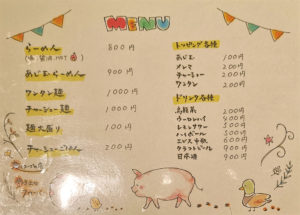 MENU
らーめん 800円
あじ玉らーめん 900円
ワンタン麺 1000円
チャーシュー麺 1000円
麺大盛り 100円
チャーシューごはん 200円
トッピング各種
あじ玉 100円
メンマ 200円
チャーシュー 200円
ワンタン 200円
ドリンク各種
烏龍茶 200円
ウーロンハイ 400円
レモンサワー 500円
ハイボール 500円
エビス中瓶 600円
クラフトビール 900円
日本酒 900円